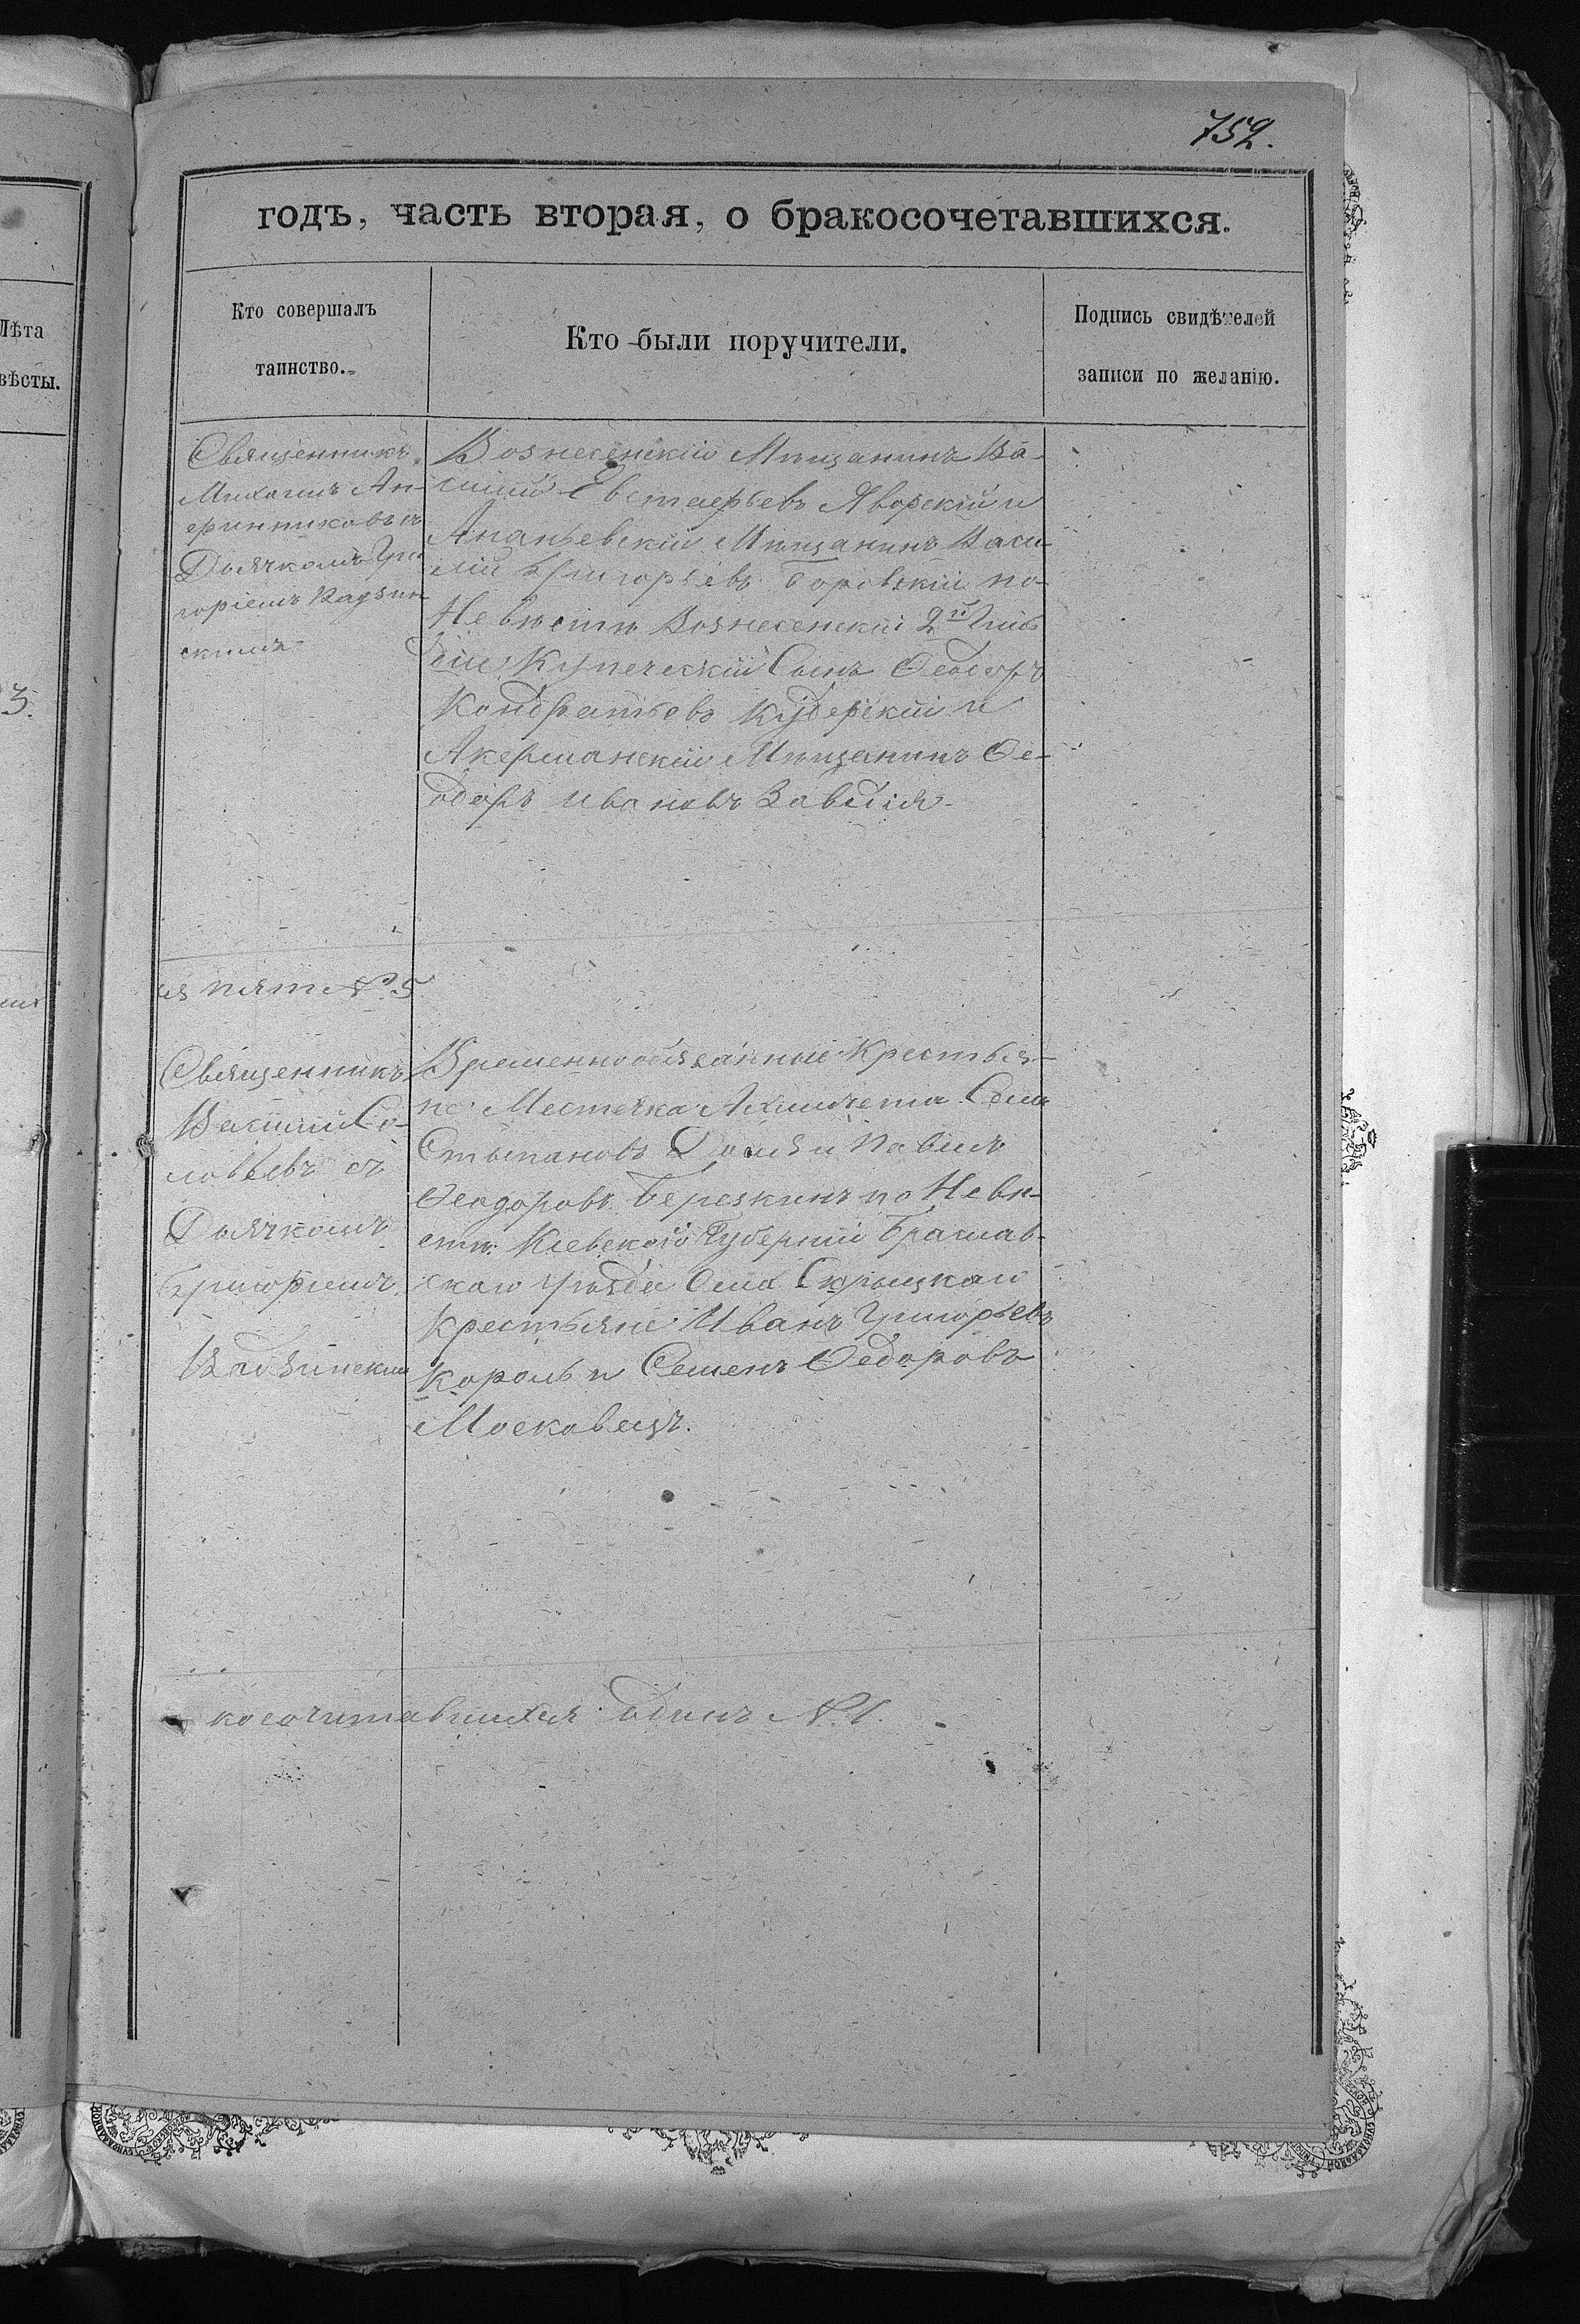 752.
годъ, часть вторая, о бракосочетавшихся.
Лѣта
вѣсты.
Кто совершалъ
таинство.
Кто были поручители.
Подпись свидѣтелей
записи по желанію.
3.
Священникъ
Михаилъ Ан-
съ
Дьячкомъ Гри
горіемъ Кадзин
скимъ
Вознесенскій Мѣщанинъ Ва-
силій Евстафьевъ Яворскій и
Ананьевскій Мѣщанинъ Васи-
лій Григорьевъ Боровскій по
Невѣстѣ Вознесенскій 2й Гиль
діи Купеческій Сынъ Ѳеодоръ
Кондратьевъ Кудерскій и
Акерманскій Мѣщанинъ Ѳе-
одоръ Ивановъ Завадія
ся пять № 5
Священникъ
Василій Со-
ловьевъ съ
Дьячкомъ
Григоріемъ
Кадзинским
Временнообязанные Крестья-
не Местечка Ахмечета
Степановъ и Павелъ
Ѳеодоровъ Березкинъ по Невѣ-
стѣ Кіевской Губерніи Брацлав-
скаго уѣзда Села Скрыцкаго
Крестьяне Иванъ Григорьевъ
Король и Семенъ Ѳедоровъ
Московецъ.
косочитавшихся одинъ № 1